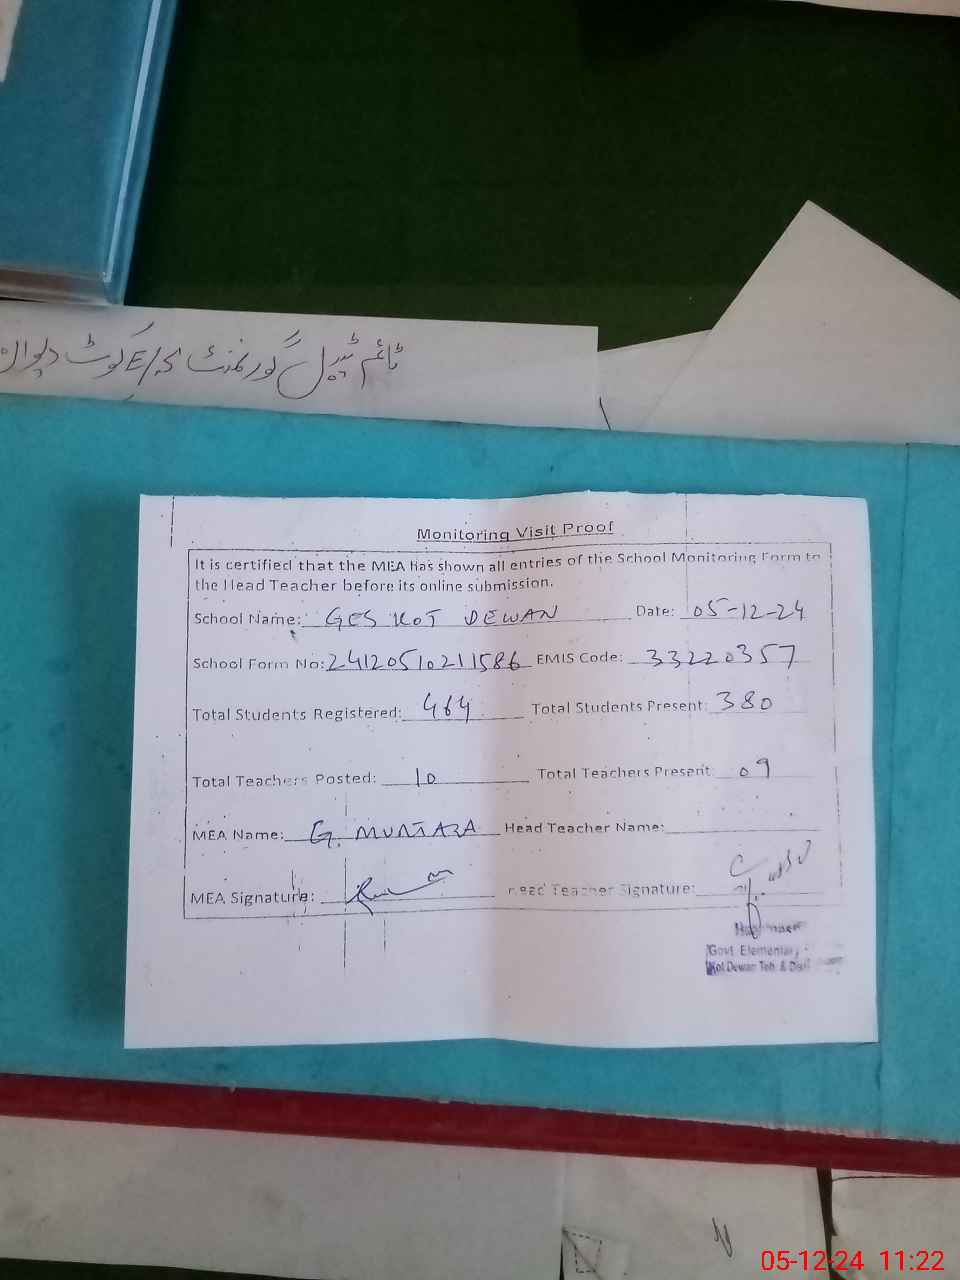 ٹائم ٹیبل گورنمنٹ E/S کوٹ دیوان
Monitoring Visit Proof
It is certified that the MEA has shown all entries of the School Monitoring Form to
the Head Teacher before its online submission.
School Name: GES KOT DEWAN Date: 05-12-24
School Form No: 24120510211586 EMIS Code: 33220357
Total Students Registered: 464 Total Students Present: 380
Total Teachers Posted: 10 Total Teachers Present: 09
MEA Name: G. MURTAZA Head Teacher Name:
MEA Signature: Head Teacher Signature:
Govt. Elementary
Kot Dewan Teh. & Dist
05-12-24 11:22